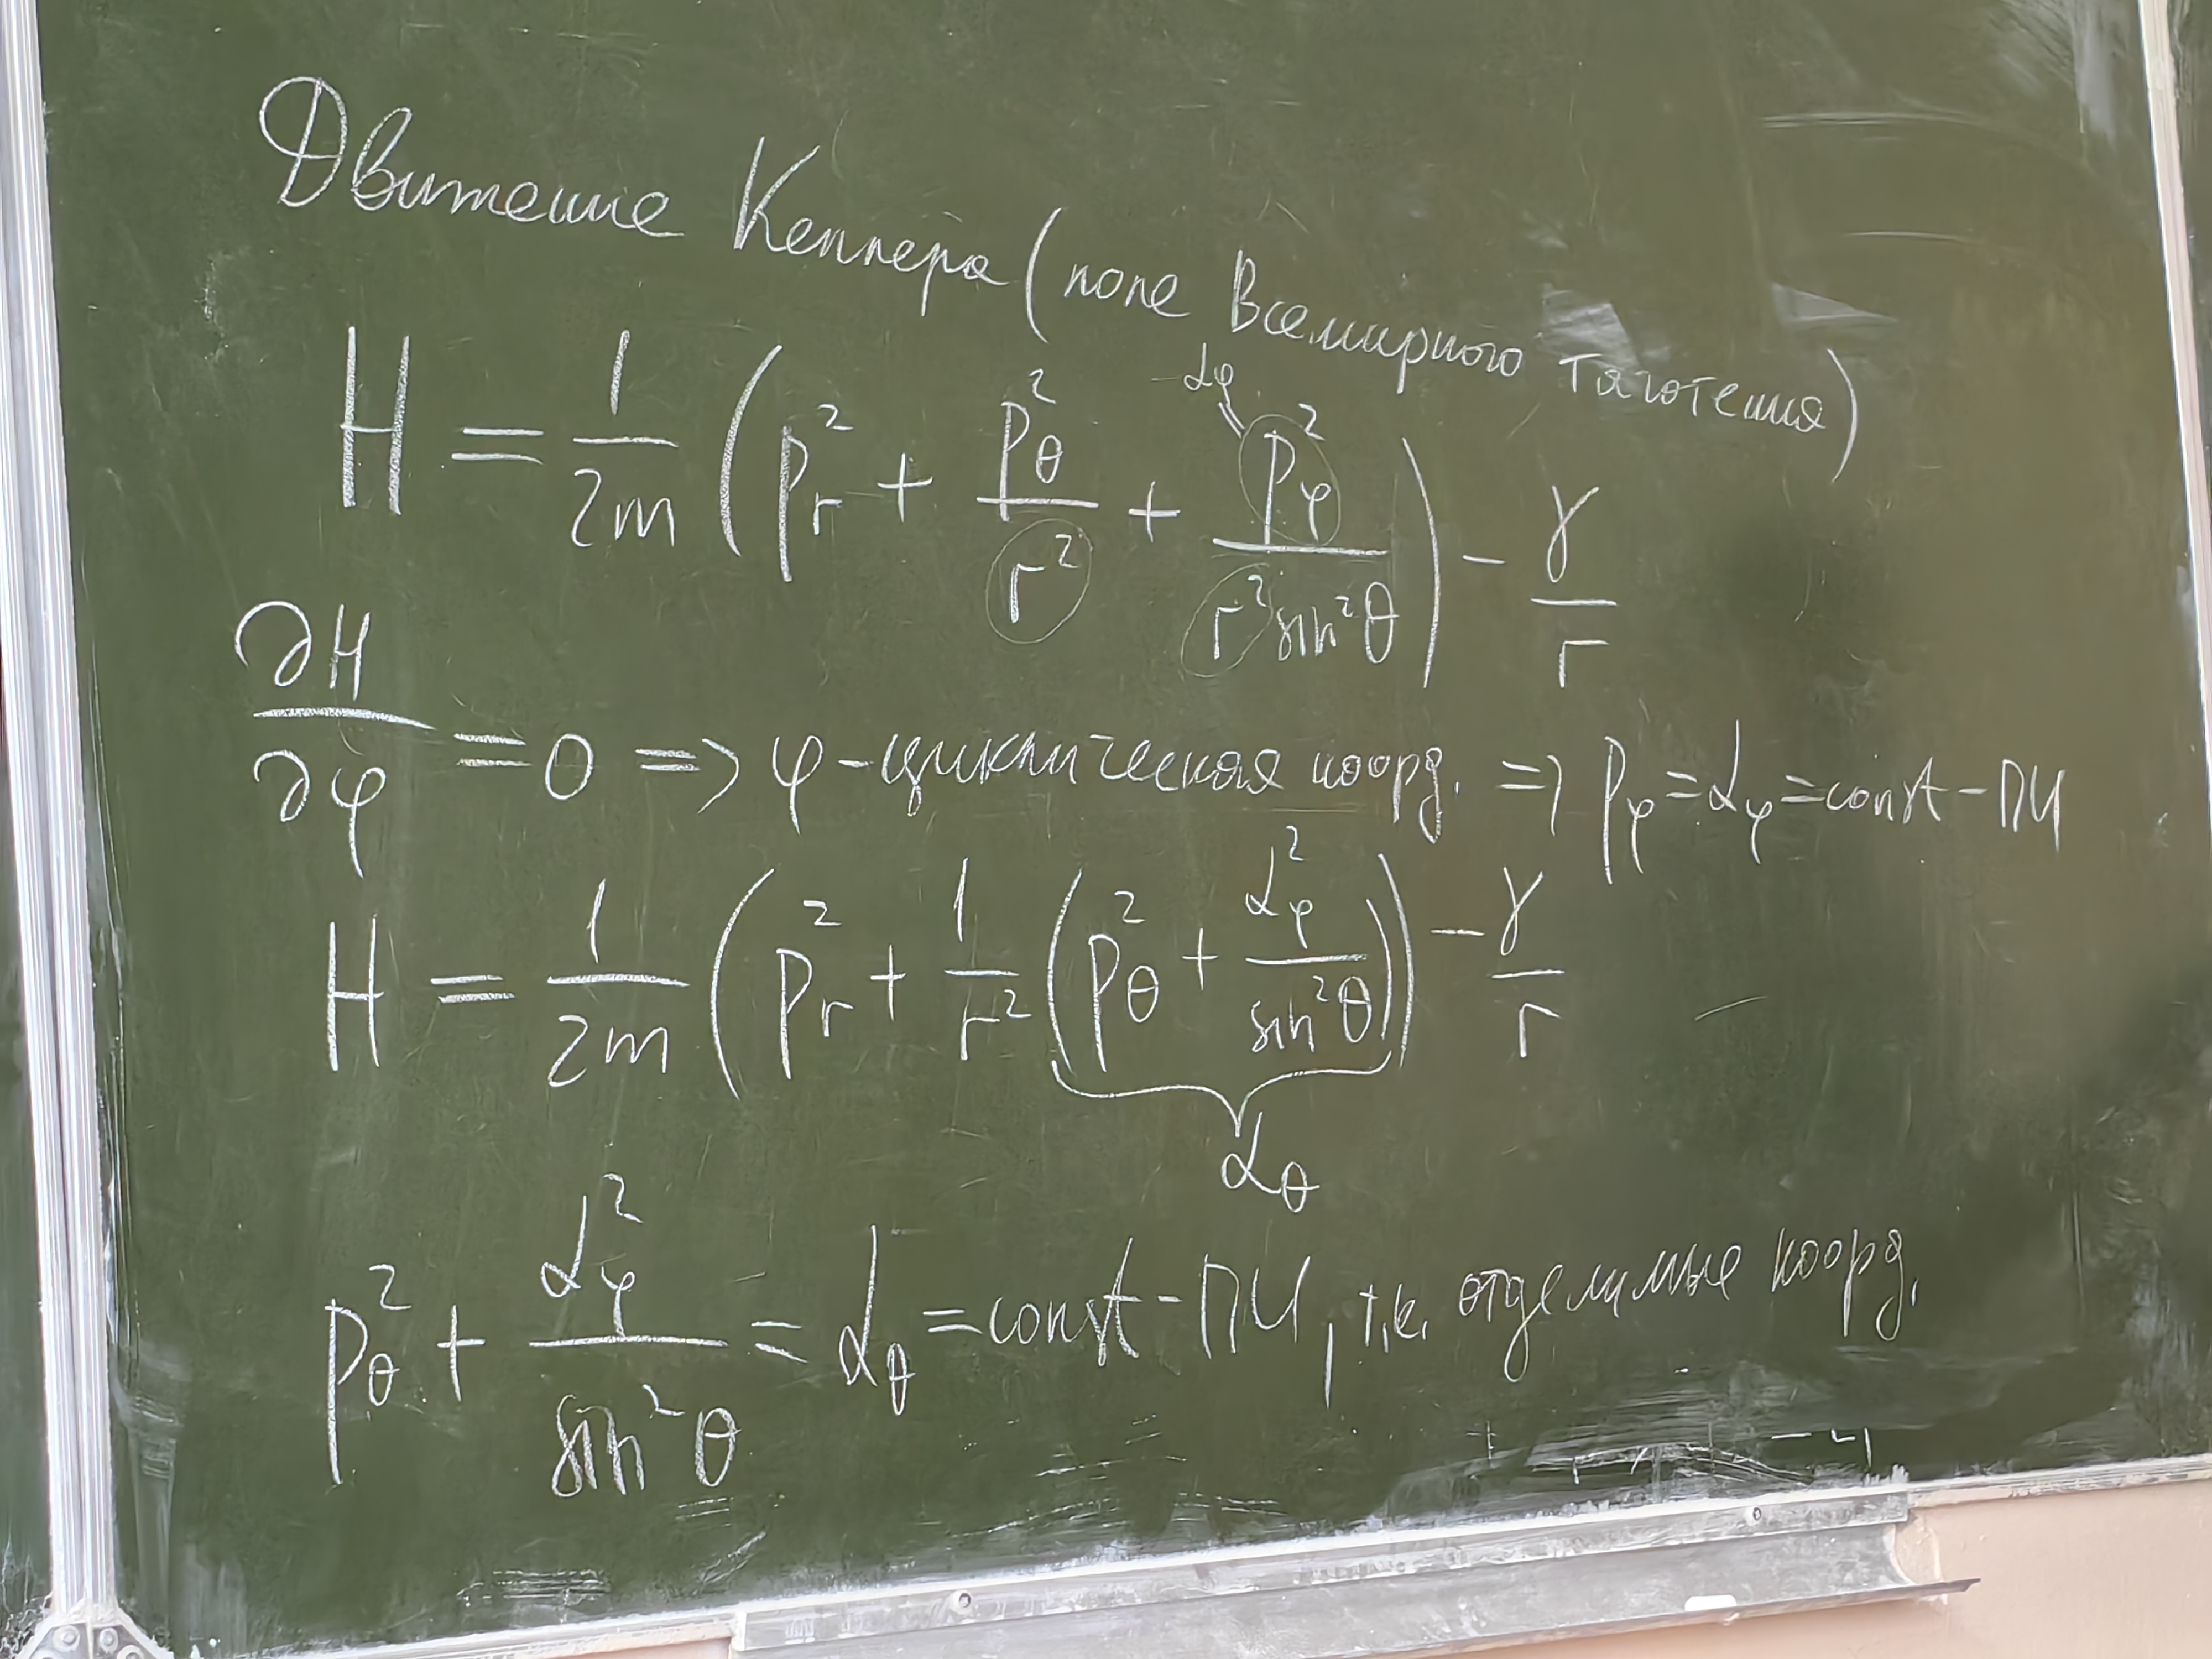 Движение Кеплера (поле Всемирного тяготения)
αφ
H = 1/2m (p_r² + p_θ²/r² + p_φ²/(r² sin²θ)) - γ/r
∂H/∂φ = 0 => φ - циклическая коорд. => p_φ = α_φ = const - ПИ
H = 1/2m (p_r² + 1/r² (p_θ² + α_φ²/sin²θ)) - γ/r
α_θ
p_θ² + α_φ²/sin²θ = α_θ = const - ПИ, т.к. отделимые коорд.